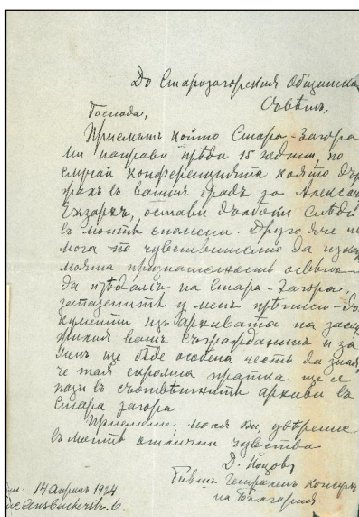 До Старозагорския Общински
Съветъ.
Господа,
Приемътъ който Стара-Загора
ми направи прѣди 15 години, по
случай конференцията която дър
жахъ въ вашия градъ за Алексан
Екзархъ, остави дълбоки слѣди
въ моитѣ спомени. Друго яче не
мога по чувствително да изка
моята признателность освѣнъ
да прѣдамъ на Стара-Загора,
запазенитѣ у менъ прѣписи-до
кументи изъ архивата на
вашъ съгражданинъ и за
менъ ще бѫде особена честь да зная
че тая скромна пратка ще се
пази въ архиви въ
Стара Загора
Приемете, моля Ви, увѣрение
въ моитѣ отлични чувства
Д. Мацовъ
Бившъ Генераленъ Консулъ
на България
14 Априлъ 1924